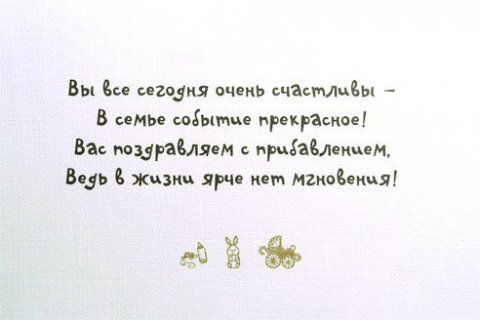 Вы все сегодня очень счастливы –
В семье событие прекрасное!
Вас поздравляем с прибавлением,
Ведь в жизни ярче нет мгновения!